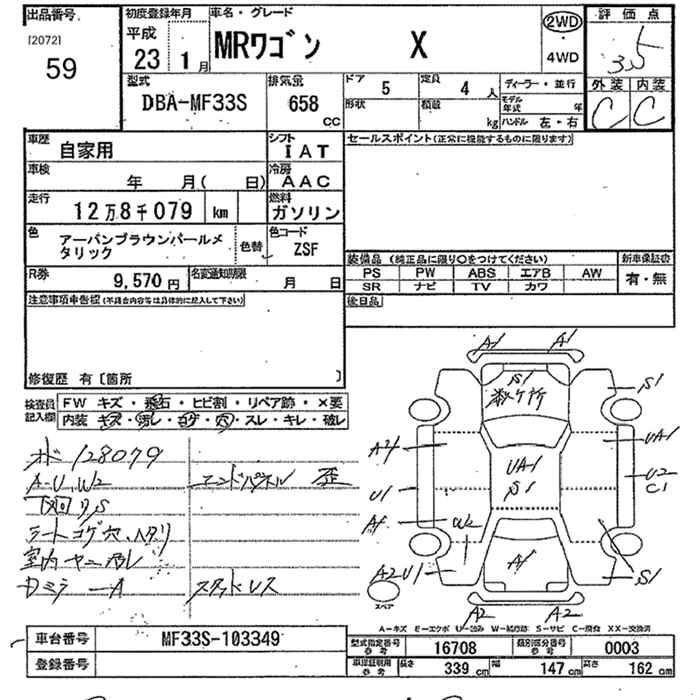 出品番号
[2072]
59
初度登録年月
平成
23 1月
車名・グレード
MRワゴン X
2WD
4WD
評価点
3.5
外装 内装
C C
型式
DBA-MF33S
排気量
658
CC
ドア 5
定員 4 人
形状
積載 kg
ディーラー・並行
モデル年式 年
ハンドル 左・右
車歴
自家用
シフト
IAT
車検
年 月( 日)
冷房
AAC
走行
12万8千079 km
燃料
ガソリン
色
アーバンブラウンパールメ
タリック
色替
色コード
ZSF
R券
9,570円
名変通知期限
月 日
セールスポイント(正常に機能するものに限ります)
装備品 (純正品に限り○をつけてください)
PS PW ABS エアB AW
SR ナビ TV カワ
新車保証書
有・無
後日品
注意事項申告欄(不具合内容等は具体的に記入して下さい)
修復歴 有〔箇所 〕
検査員
記入欄
FW キズ・飛石・ヒビ割・リペア跡・×要
内装 キズ・汚レ・コゲ・穴・スレ・キレ・破レ
ボ 128079
A-U,W2 エンドパネル 歪
下廻りS
シートコゲ穴,ヘタリ
室内ヤニ汚レ
A1 A1
S1
数ヶ所
S1
UA1
UA1
S1
U2
C1
U1
W2
A1
A2 U1
S1
スペア
A2 A2
A-キズ E-エクボ U-凹み W-補修跡 S-サビ C-腐食 XX-交換済
車台番号
MF33S-103349
登録番号
型式指定番号
参考
16708
類別区分番号
参考
0003
車庫証明用
参考
長さ 339 cm
幅 147 cm
高さ 162 cm